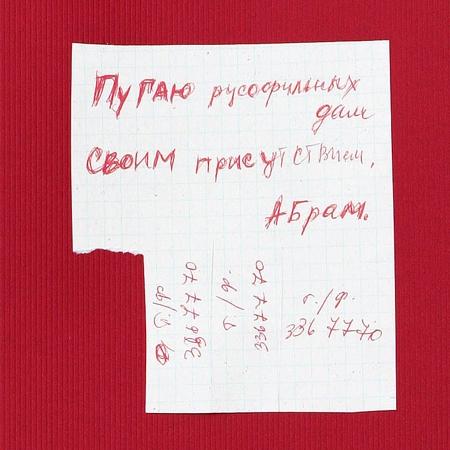 Пугаю русофильных
дам
своим присутствием,
Абрам.
т./ф.
336 77 70
т./ф.
336 77 70
т./ф.
336 77 70